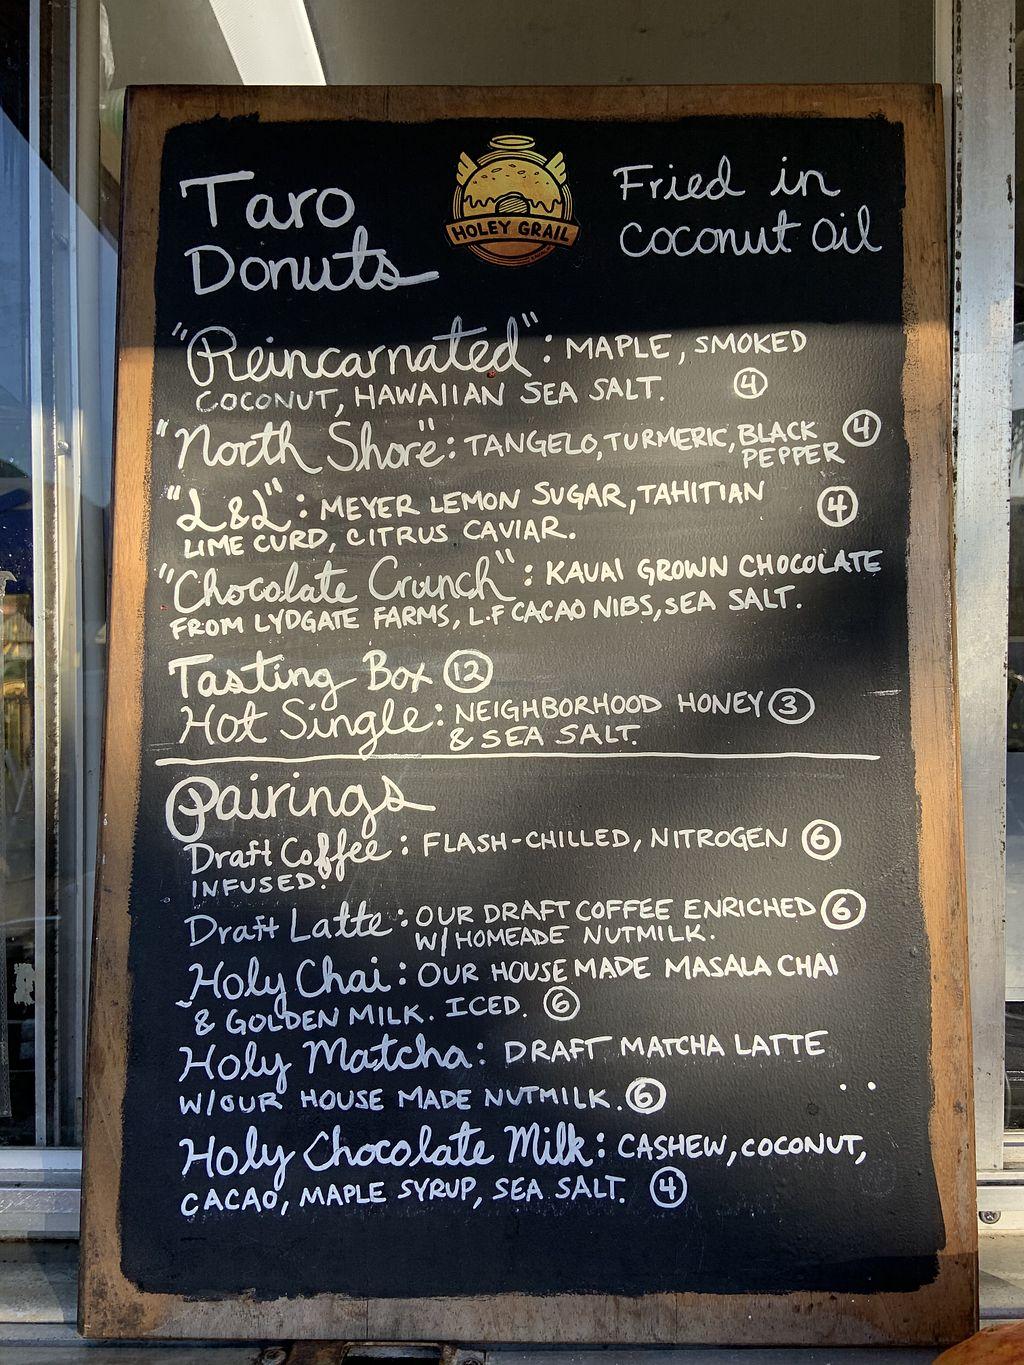 Taro
Donuts
HOLEY GRAIL
Fried in
Coconut Oil
"Reincarnated": MAPLE, SMOKED
COCONUT, HAWAIIAN SEA SALT. 4
"North Shore": TANGELO, TURMERIC, BLACK PEPPER 4
"L&L": MEYER LEMON SUGAR, TAHITIAN
LIME CURD, CITRUS CAVIAR. 4
"Chocolate Crunch": KAUAI GROWN CHOCOLATE
FROM LYDGATE FARMS, L.F CACAO NIBS, SEA SALT.
Tasting Box 12
Hot Single: NEIGHBORHOOD HONEY 3
& SEA SALT.
Pairings
Draft Coffee: FLASH-CHILLED, NITROGEN 6
INFUSED.
Draft Latte: OUR DRAFT COFFEE ENRICHED 6
W/HOMEADE NUTMILK.
Holy Chai: OUR HOUSE MADE MASALA CHAI
& GOLDEN MILK. ICED. 6
Holy Matcha: DRAFT MATCHA LATTE
W/OUR HOUSE MADE NUTMILK. 6
Holy Chocolate Milk: CASHEW, COCONUT,
CACAO, MAPLE SYRUP, SEA SALT. 4